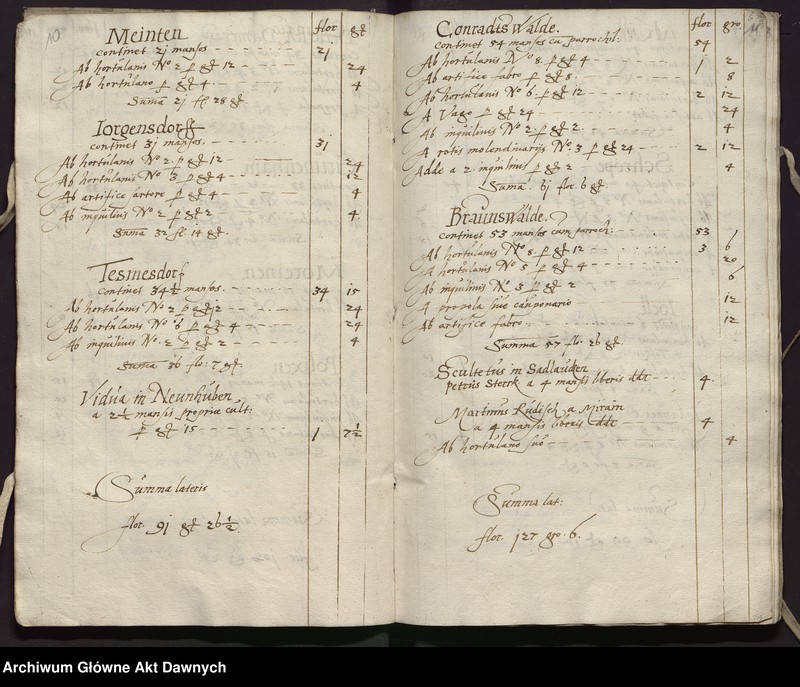 10
flor gͦ
Meinten
continet 2j mansos - - - 2j
Ab hortulanis No 2 p gͦ 12 - - - 24
Ab hortulano p gͦ 4 - - - 4
Suma 2j fl 28 gͦ
Jorgensdorff
continet 3j mansos - - - 3j
Ab hortulanis No 2 p gͦ 12 - - - 24
Ab hortulanis No 3 p gͦ 4 - - - 12
Ab artifice sartore p gͦ 4 - - - 4
Ab inquilinis No 2 p gͦ 2 - - - 4
Suma 32 fl. 14 gͦ.
Tesmesdorf
continet 34½ mansos - - - 34 15
Ab hortulanis No 2 p gͦ 12 - - - 24
Ab hortulanis No 6 p gͦ 4 - - - 24
Ab inquilinis No 2 p gͦ 2 - - - 4
Suma 36 flo: 7 gͦ.
Vidua in Neunhuben
a 2½ mansis propriæ cult:
p gͦ 15 - - - 1 7½
Summa lateris
flor. 9j gͦ 26½
flor gro
Conradtswalde.
continet 54 mansos cu parroch: - - - 54
Ab hortulanis No 8. p gͦ 4 - - - j 2
Ab artifice fabro p gͦ 8 - - - 8
Ab hortulanis No 6. p gͦ 12 - - - 2 12
A Vago p gͦ 24 - - - 24
Ab inquilinis No 2 p gͦ 2 - - - 4
A rotis molendinarijs No 3 p gͦ 24 - - - 2 12
Adde a 2 inquilinis p gͦ 2 - - - 4
Suma 6j flor. 6 gͦ
Braunswalde.
continet 53 mansos cum parroch: - - - 53
Ab hortulanis No 8. p gͦ 12 - - - 3 6
A hortulanis No 5 p gͦ 4 - - - 20
Ab inquilinis No 3 p gͦ 2 - - - 6
A propola sive cauponario - - - 12
Ab artifice fabro - - - 12
Summa 57 flo. 26 gͦ
Scultetus in Sadlauden
petrus Sterck a 4 mansis liberis ddt - - - 4
Martinus Rüdisch a Mirain
a 4 mansis liberis ddt - - - 4
Ab hortulano suo - - - 4
Summa lat:
flor. j27 gro. 6.
Archiwum Główne Akt Dawnych